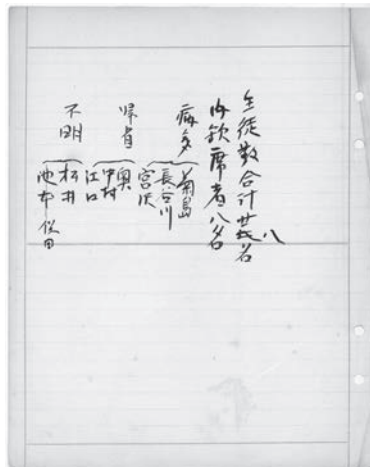 生徒数合計廿八名
内欠席者八名
病欠 菊島
長谷川
宮沢
帰省 奥
中村
江口
不明 松井
池本